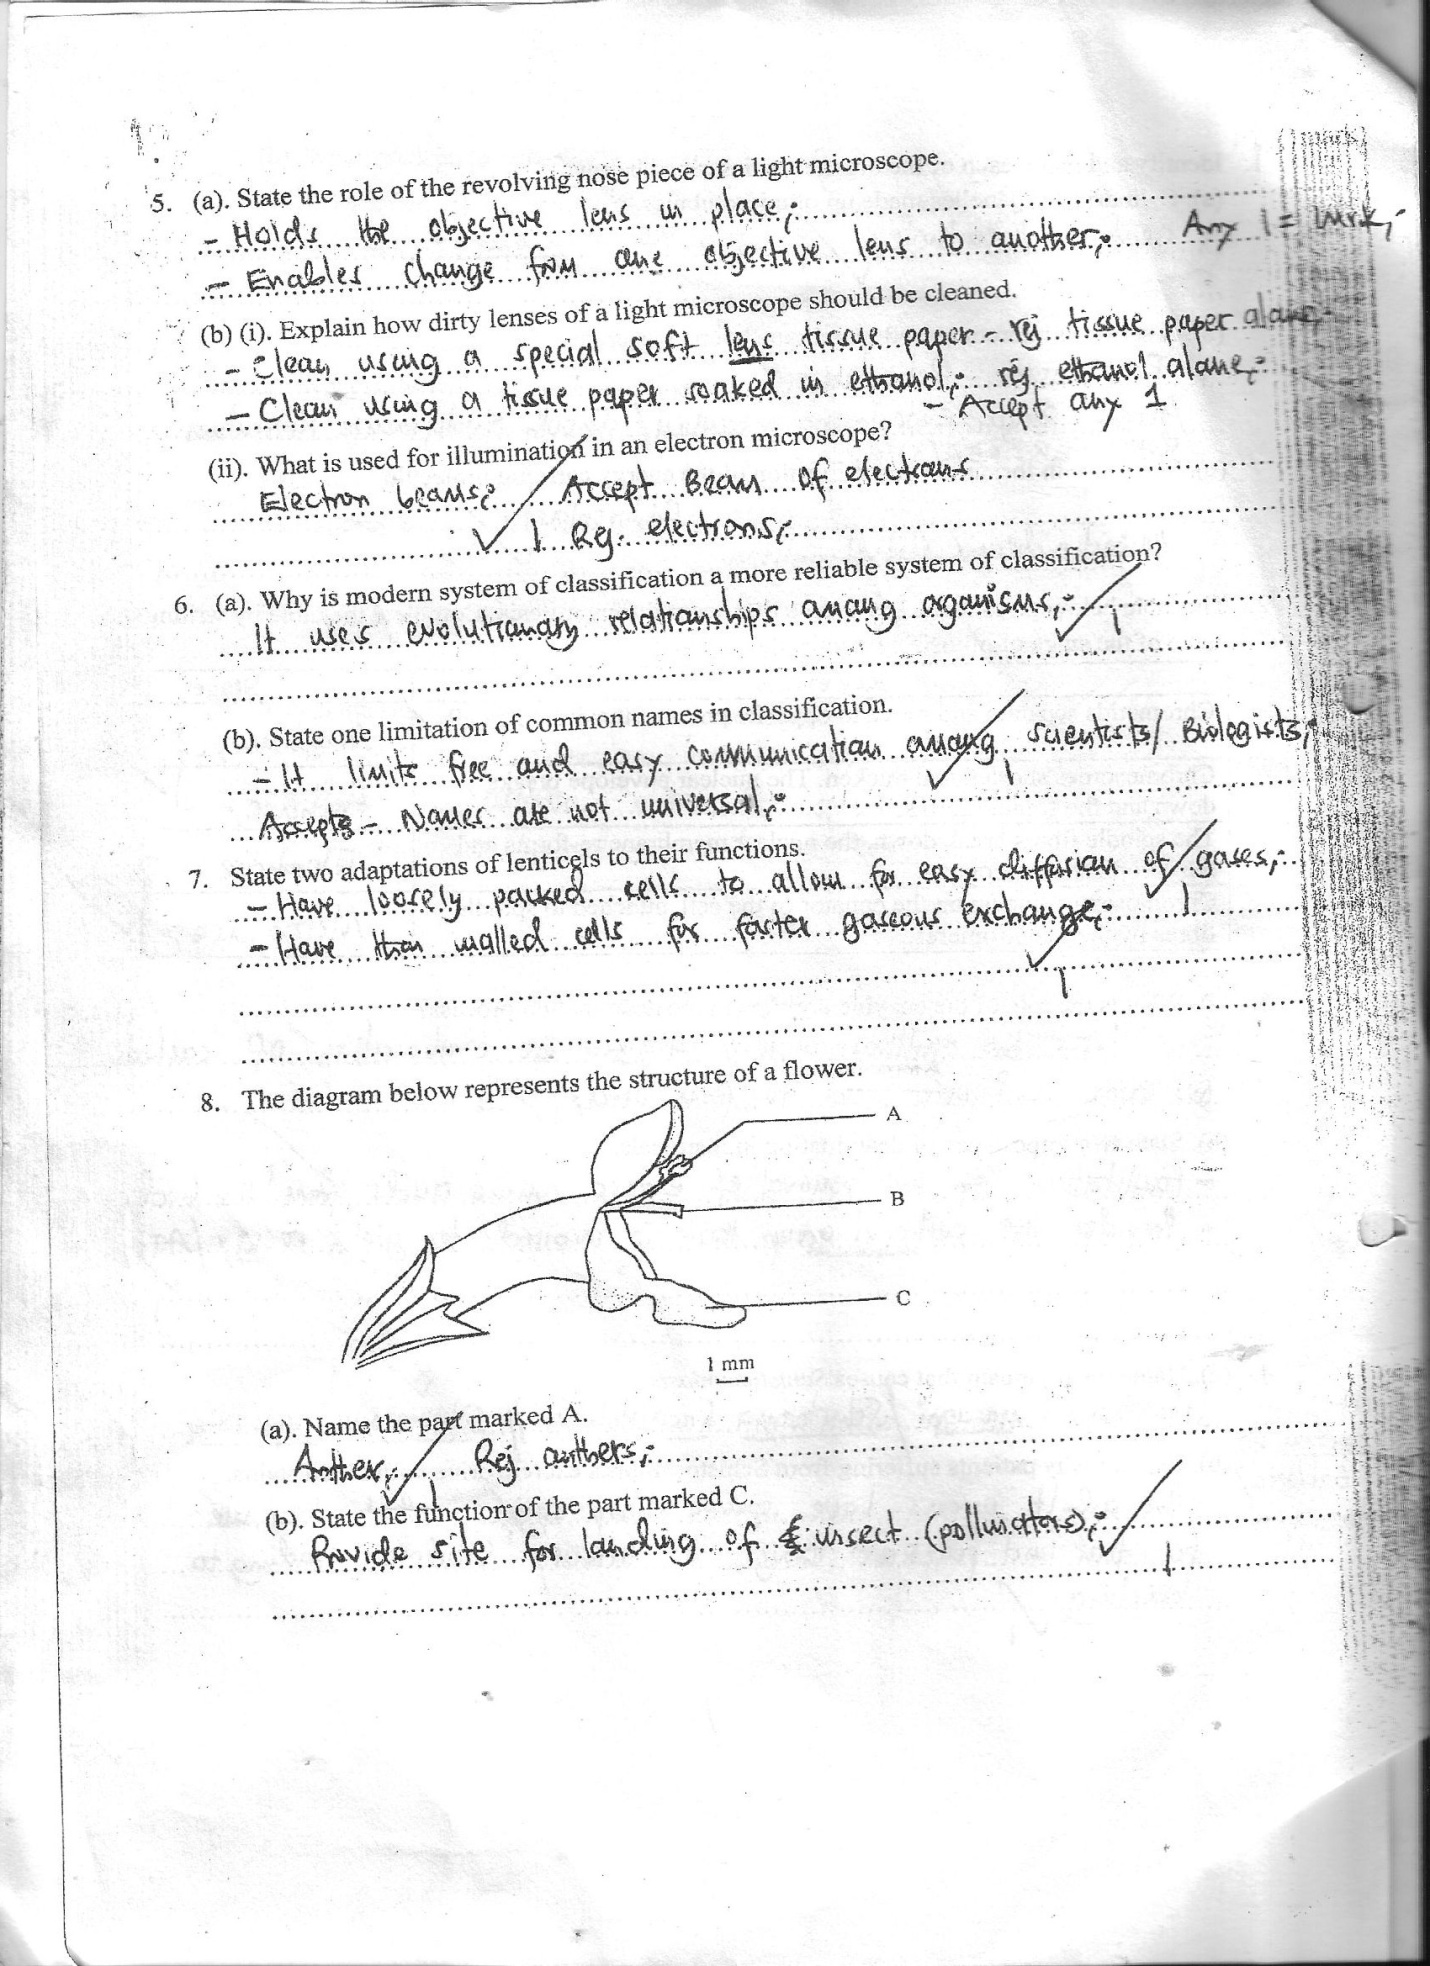 5. (a). State the role of the revolving nose piece of a light microscope.
- Holds the objective lens in place;
- Enables change from one objective lens to another; Any 1 = 1mrk;
(b) (i). Explain how dirty lenses of a light microscope should be cleaned.
- Clean using a special soft lens tissue paper - rej tissue paper alone;
- Clean using a tissue paper soaked in ethanol; rej ethanol alone;
- Accept any 1
(ii). What is used for illumination in an electron microscope?
Electron beams; Accept Beam of electrons
1 Rej. electrons;
6. (a). Why is modern system of classification a more reliable system of classification?
It uses evolutionary relationships among organisms; 1
(b). State one limitation of common names in classification.
- It limits free and easy communication among scientists/ Biologists; 1
Accept - Names are not universal;
7. State two adaptations of lenticels to their functions.
- Have loosely packed cells to allow for easy diffusion of gases;
- Have thin walled cells for faster gaseous exchange; 1
1
8. The diagram below represents the structure of a flower.
A
B
C
1 mm
(a). Name the part marked A.
Anther; Rej anthers;
1
(b). State the function of the part marked C.
Provide site for landing of insect (pollinators);
1